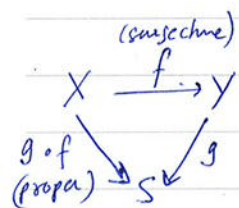 (surjective)
f
X → Y
g∘f g
(proper) S